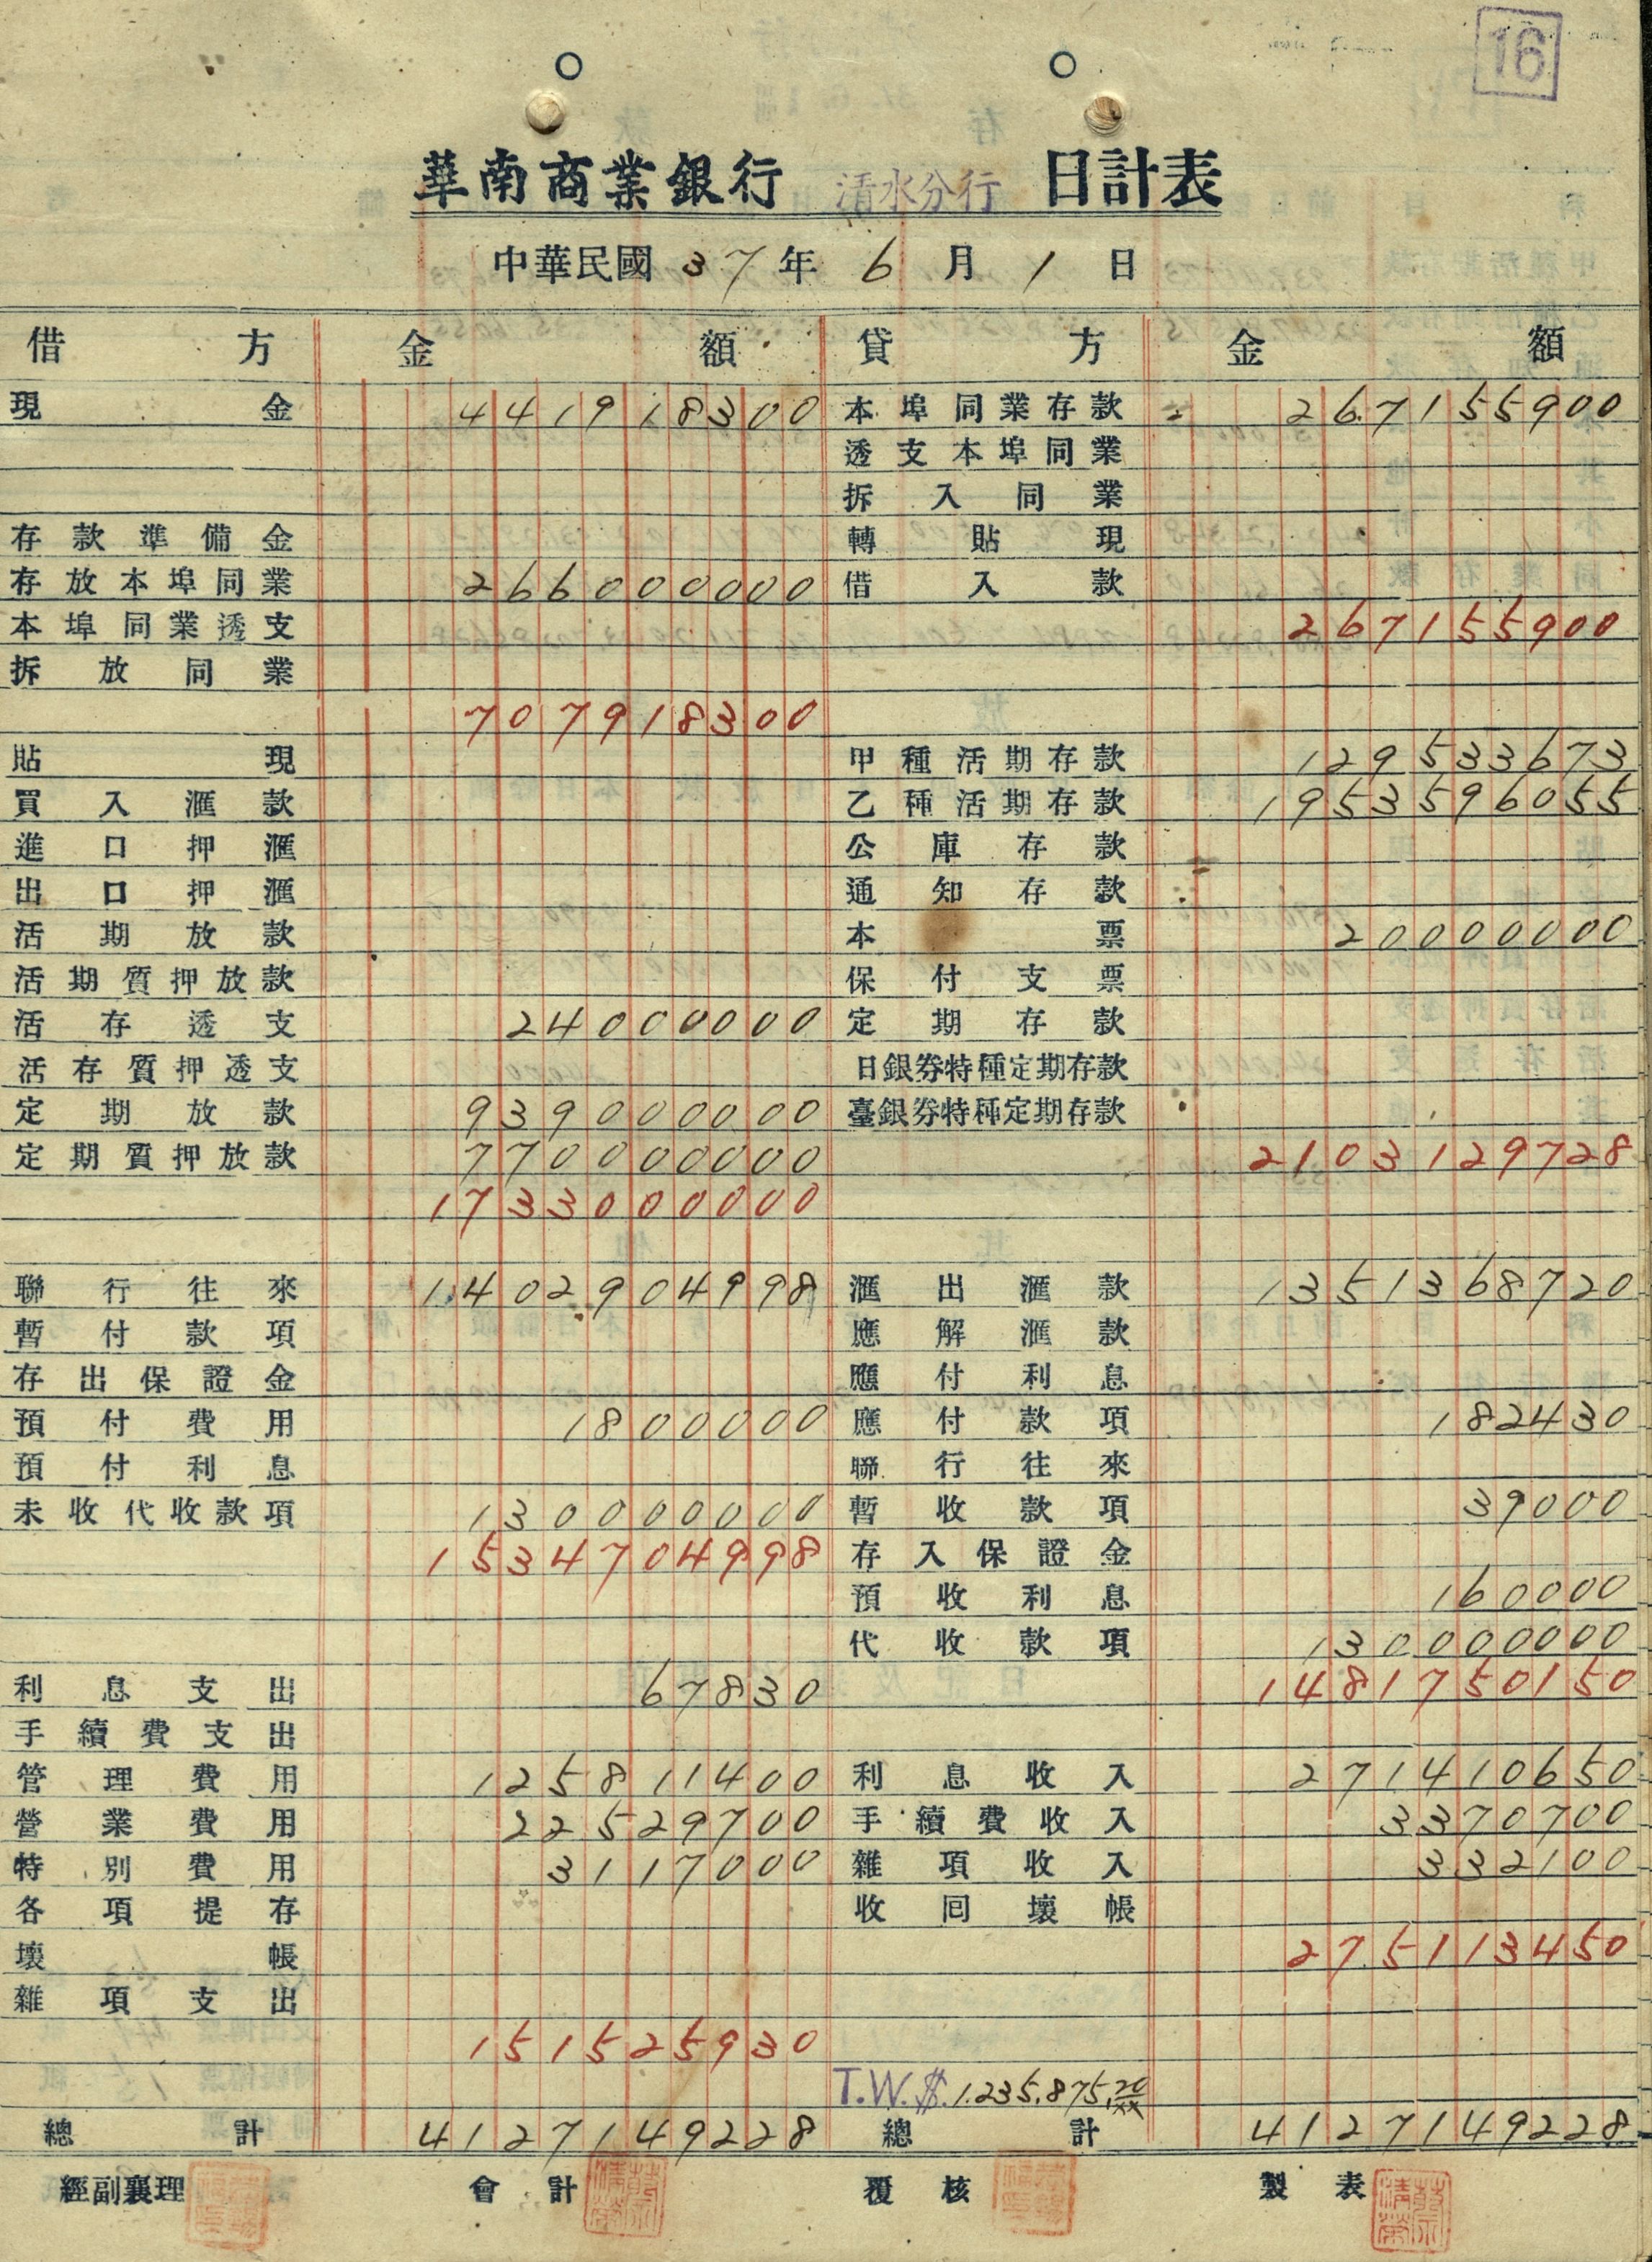 16
華南商業銀行 清水分行 日計表
中華民國 37 年 6 月 1 日
借方 金額 貸方 金額
現金 441918300 本埠同業存款 267155900
透支本埠同業
拆入同業
存款準備金 轉貼現
存放本埠同業 266000000 借入款
本埠同業透支 267155900
拆放同業
707918300
貼現 甲種活期存款 129533673
買入滙款 乙種活期存款 1953596055
進口押滙 公庫存款
出口押滙 通知存款
活期放款 本票 20000000
活期質押放款 保付支票
活存透支 24000000 定期存款
活存質押透支 日銀券特種定期存款
定期放款 939000000 臺銀券特種定期存款
定期質押放款 770000000 2103129728
1733000000
聯行往來 1402904998 滙出滙款 1351368720
暫付款項 應解滙款
存出保證金 應付利息
預付費用 1800000 應付款項 182430
預付利息 聯行往來
未收代收款項 130000000 暫收款項 39000
1534704998 存入保證金
預收利息 160000
代收款項 130000000
利息支出 67830 1481750150
手續費支出
管理費用 125811400 利息收入 271410650
營業費用 22529700 手續費收入 3370700
特別費用 3117000 雜項收入 332100
各項提存 收回壞帳
壞帳 275113450
雜項支出
151525930
T.W.$.1.235.875.20/xx
總計 4127149228 總計 4127149228
經副襄理 會計 覆核 製表